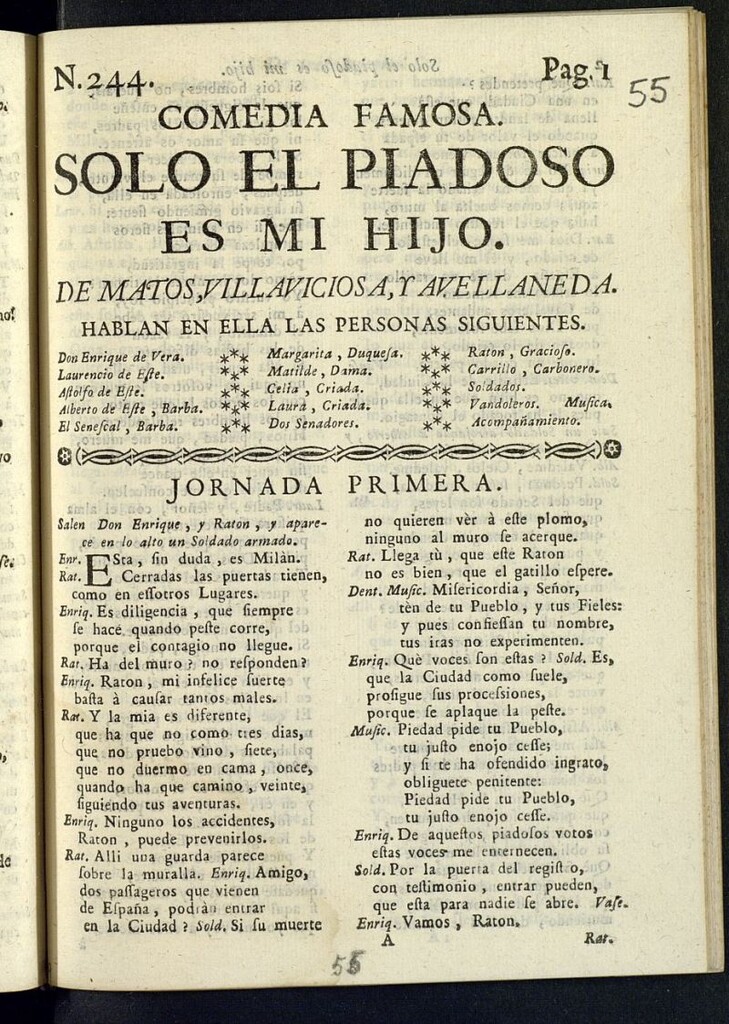 N.244.
Pag. 1
55
COMEDIA FAMOSA.
SOLO EL PIADOSO
ES MI HIJO.
DE MATOS, VILLAVICIOSA, Y AVELLANEDA.
HABLAN EN ELLA LAS PERSONAS SIGUIENTES.
Don Enrique de Vera.
Laurencio de Eſte.
Aſtolfo de Eſte.
Alberto de Eſte, Barba.
El Seneſcal, Barba.
Margarita, Duqueſa.
Matilde, Dama.
Celia, Criada.
Laura, Criada.
Dos Senadores.
Raton, Gracioſo.
Carrillo, Carbonero.
Soldados.
Vandoleros. Muſica.
Acompañamiento.
JORNADA PRIMERA.
Salen Don Enrique, y Raton, y apare-
ce en lo alto un Soldado armado.
Enr. ESta, ſin duda, es Milàn.
Rat. Cerradas las puertas tienen,
como en eſſotros Lugares.
Enriq. Es diligencia, que ſiempre
ſe hace quando peſte corre,
porque el contagio no llegue.
Rat. Ha del muro? no reſponden?
Enriq. Raton, mi infelice ſuerte
baſta à cauſar tantos males.
Rat. Y la mia es diferente,
que ha que no como tres dias,
que no pruebo vino, ſiete,
que no duermo en cama, once,
quando ha que camino, veinte,
ſiguiendo tus aventuras.
Enriq. Ninguno los accidentes,
Raton, puede prevenirlos.
Rat. Alli una guarda parece
ſobre la muralla. Enriq. Amigo,
dos paſſageros que vienen
de Eſpaña, podràn entrar
en la Ciudad? Sold. Si ſu muerte
no quieren vèr à eſte plomo,
ninguno al muro ſe acerque.
Rat. Llega tù, que eſte Raton
no es bien, que el gatillo eſpere.
Dent. Muſic. Miſericordia, Señor,
tèn de tu Pueblo, y tus Fieles:
y pues confieſſan tu nombre,
tus iras no experimenten.
Enriq. Què voces ſon eſtas? Sold. Es,
que la Ciudad como ſuele,
proſigue ſus proceſsiones,
porque ſe aplaque la peſte.
Muſic. Piedad pide tu Pueblo,
tu juſto enojo ceſſe;
y ſi te ha ofendido ingrato,
obliguete penitente:
Piedad pide tu Pueblo,
tu juſto enojo ceſſe.
Enriq. De aqueſtos piadoſos votos
eſtas voces me enternecen.
Sold. Por la puerta del regiſt o,
con teſtimonio, entrar pueden,
que eſta para nadie ſe abre. Vaſe.
Enriq. Vamos, Raton.
A
Rat.